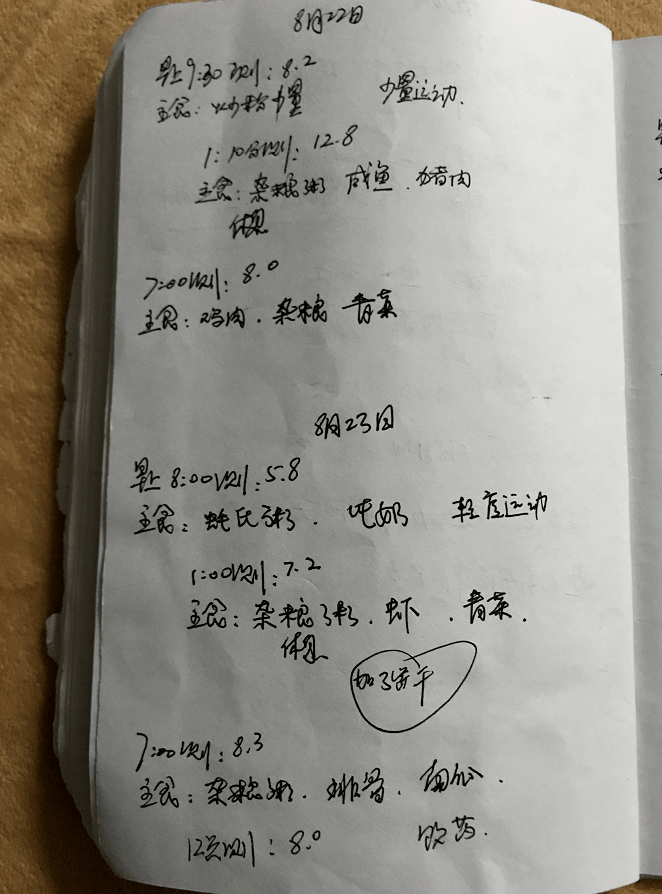 8月22日
早上9:30测:8.2
主食:炒粉少量 少量运动.
1:10分测:12.8
主食:杂粮粥 咸鱼.猪肉
休息
7:00测:8.0
主食:鸡肉.杂粮 青菜
8月23日
早上8:00测:5.8
主食:蚝氏粥. 吨奶 轻度运动
1:00测:7.2
主食:杂粮粥.虾.青菜.
休息
加了饼干
7:00测:8.3
主食:杂粮粥.排骨.南瓜.
12点测:8.0 吃药.